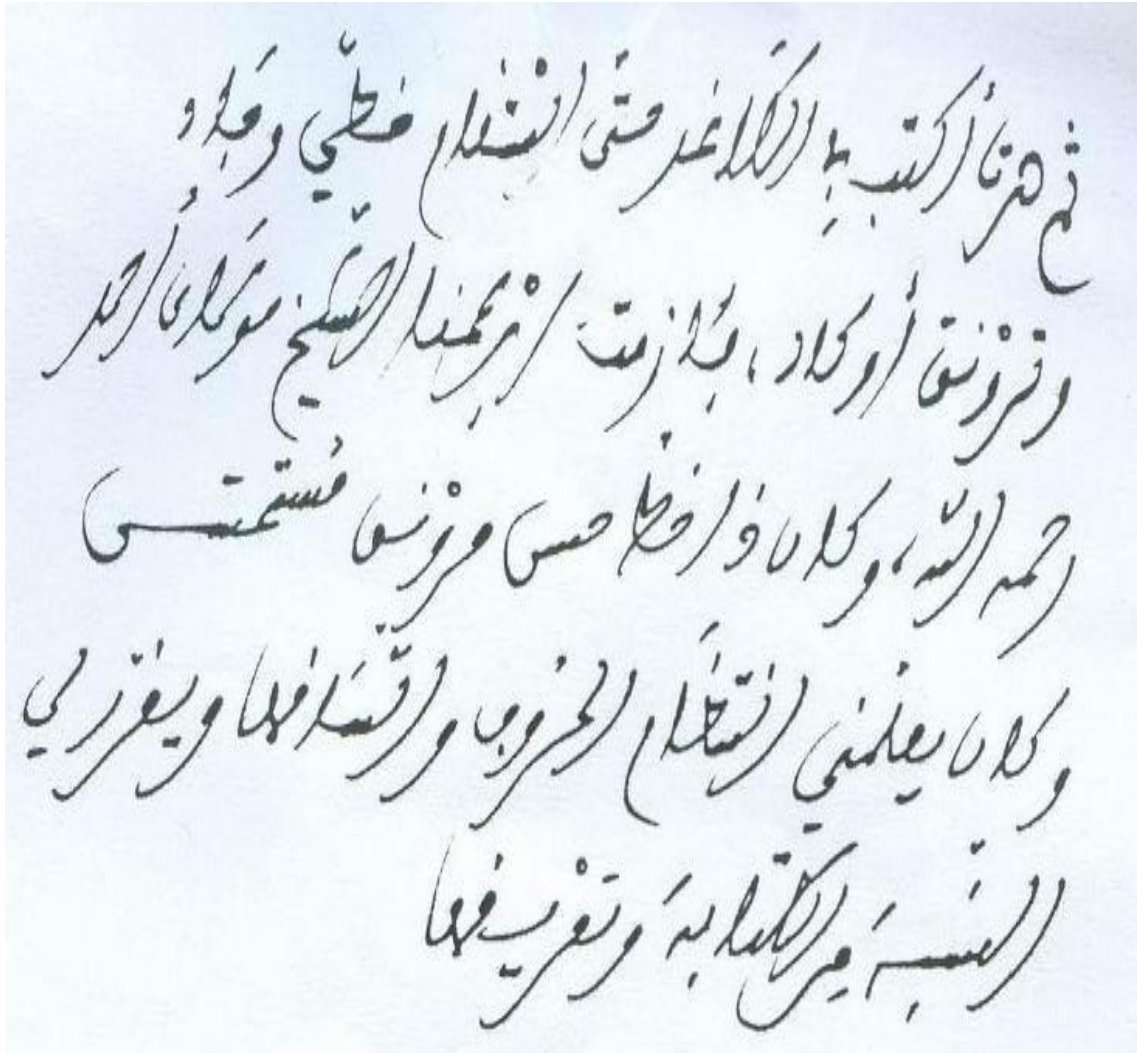 ثم صرنا أكتب في الكاغد حتى استقام خطي وجاد
وترونق أو كاد، فلازمت لزيمنا الشيخ مولاي أحمد
رحمه الله، وكان ذا خط حسن ورونق مستحسن
وكان يعلمني انتظام الحروف واتساقها ويقرر لي
النسبة في الكتابة وتعريفها